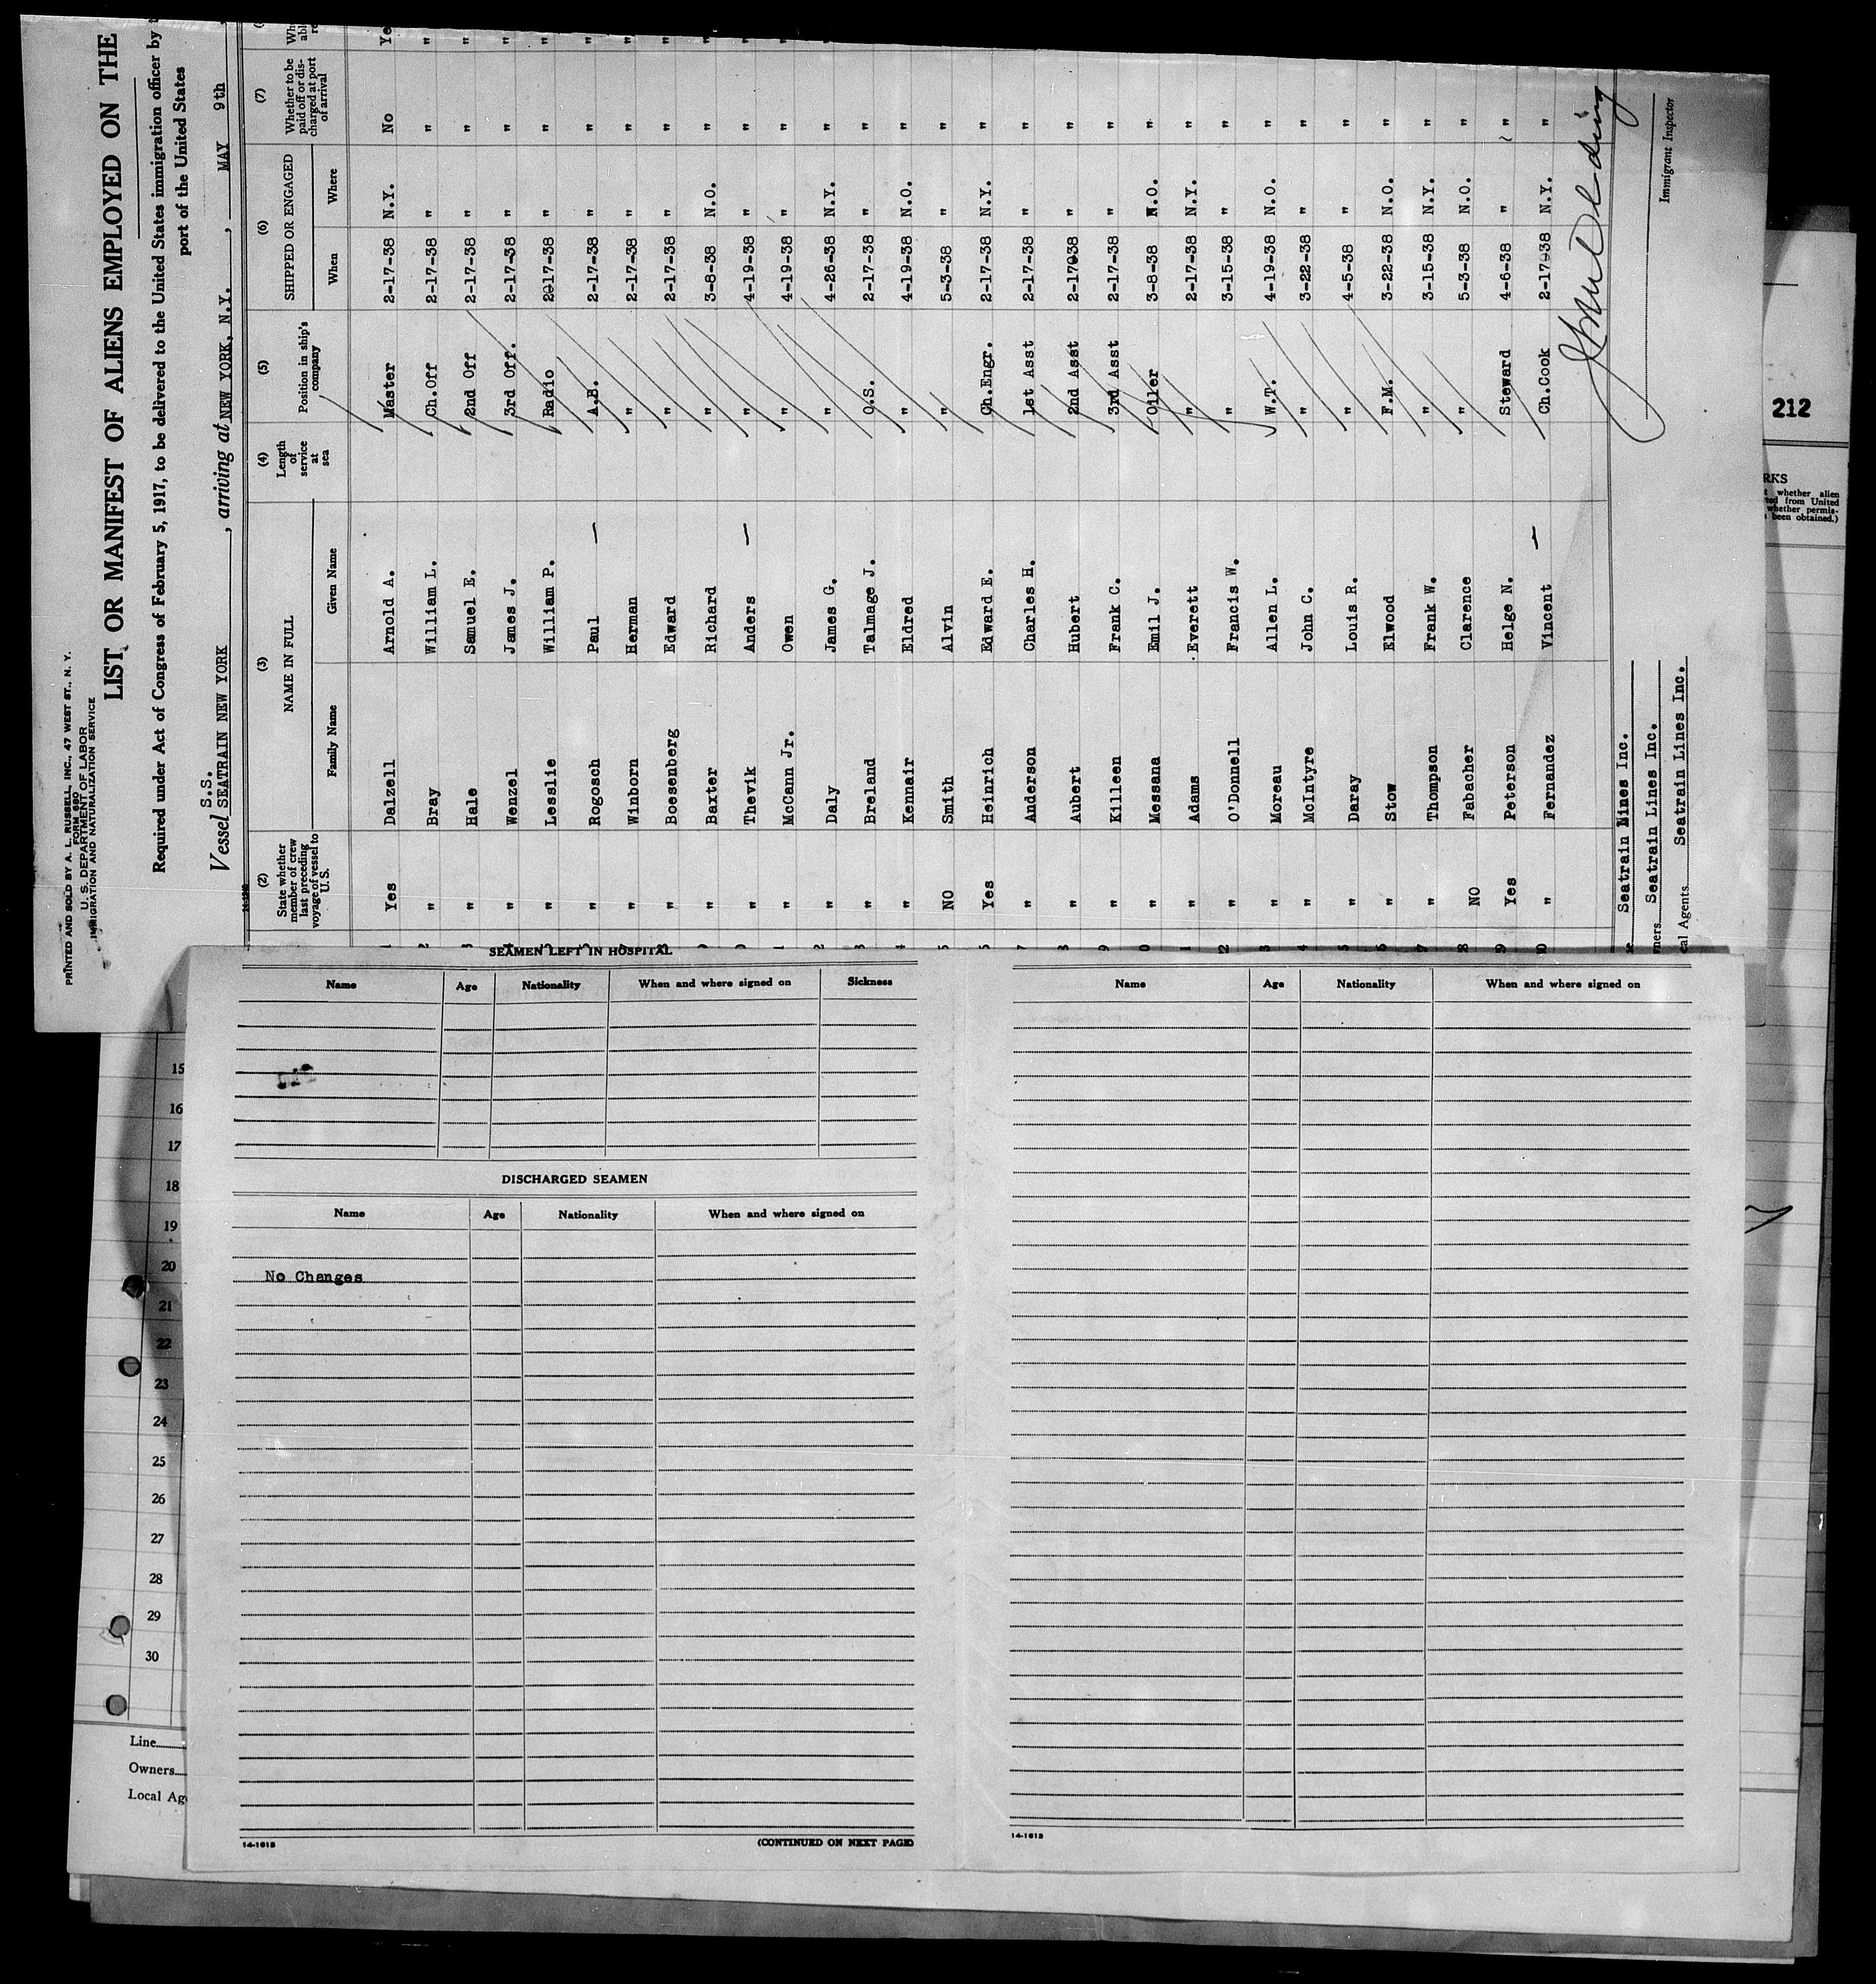 PRINTED AND SOLD BY A. L. RUSSELL, INC., 47 WEST ST., N. Y.
FORM 680
U. S. DEPARTMENT OF LABOR
IMMIGRATION AND NATURALIZATION SERVICE
LIST OR MANIFEST OF ALIENS EMPLOYED ON THE
Required under Act of Congress of February 5, 1917, to be delivered to the United States immigration officer by
port of the United States
S.S.
Vessel SEATRAIN NEW YORK, arriving at NEW YORK, N.Y., MAY 9th
(2) (3) (4) (5) (6) (7)
State whether member of crew last preceding voyage of vessel to U. S. NAME IN FULL Length of service at sea Position in ship's company SHIPPED OR ENGAGED Whether to be paid off or discharged at port of arrival
Family Name Given Name When Where
Yes Dalzell Arnold A. Master 2-17-38 N.Y. No Ye
2 " Bray William L. Ch.Off 2-17-38 " " "
" Hale Samuel E. 2nd Off 2-17-38 " " "
" Wenzel James J. 3rd Off. 2-17-38 " " "
" Lesslie William P. Radio 2017-38 " " "
" Rogosch Paul — A.B. 2-17-38 " " "
" Winborn Herman " 2-17-38 " " "
" Boesenberg Edward " 2-17-38 " " "
" Baxter Richard " 3-8-38 N.O. " "
" Thevik Anders — " 4-19-38 " " "
1 " McCann Jr. Owen " 4-19-38 " " "
2 " Daly James G. " 4-26-38 N.Y. " "
3 " Breland Talmage J. O.S. 2-17-38 " "
4 " Kennair Eldred " 4-19-38 N.O. "
5 NO Smith Alvin " 5-3-38 " "
Yes Heinrich Edward E. Ch.Engr. 2-17-38 N.Y. "
7 " Anderson Charles H. 1st Asst 2-17-38 " "
8 " Aubert Hubert 2nd Asst 2-17038 " "
9 " Killeen Frank C. 3rd Asst 2-17-38 " "
0 " Messana Emil J. Oiler 3-8-38 N.O. "
1 " Adams Everett " 2-17-38 N.Y. "
2 " O'Donnell Francis W. " 3-15-38 " "
3 " Moreau Allen L. W.T. 4-19-38 N.O. "
4 " McIntyre John C. " 3-22-38 " "
5 " Daray Louis R. " 4-5-38 " "
6 " Stow Elwood F.M. 3-22-38 N.O. "
7 " Thompson Frank W. " 3-15-38 N.Y. "
8 NO Fabacher Clarence " 5-3-38 N.O. "
9 Yes Peterson Helge N. Steward 4-6-38 " "
" Fernandez Vincent — Ch.Cook 2-17038 N.Y. "
Seatrain Lines Inc.
Seatrain Lines Inc.
Seatrain Lines Inc.
Immigrant Inspector
212
RKS
whether alien
from United
whether permis-
been obtained.)
SEAMEN LEFT IN HOSPITAL
Name Age Nationality When and where signed on Sickness
DISCHARGED SEAMEN
Name Age Nationality When and where signed on
No Changes
14-1613
(CONTINUED ON NEXT PAGE)
Name Age Nationality When and where signed on
14-1613
15
16
17
18
19
20
21
22
23
24
25
26
27
28
29
30
Line
Owners
Local Ag